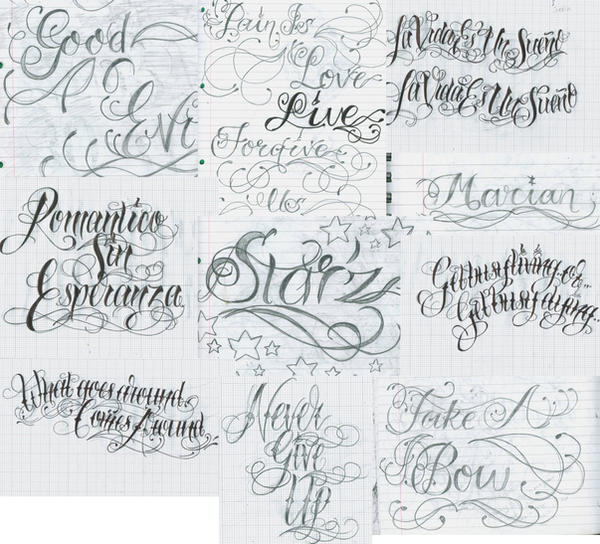 Good
&
Evil
Pain Is
Love
Live
Forgive
La Vida Es Un Sueño
La Vida Es Un Sueño
Marian
Romantico
Sin
Esperanza
Starz
Get busy living or...
Get busy dying...
What goes around
Comes Around
Never
Give
Up
Take A
Bow